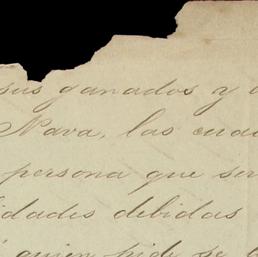 sus ganados y
Nava, las cua
persona que ser
idades debidas
quien pide se